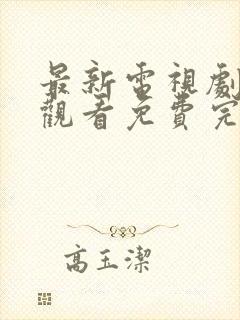 最新電視劇
觀看免費完
高玉潔